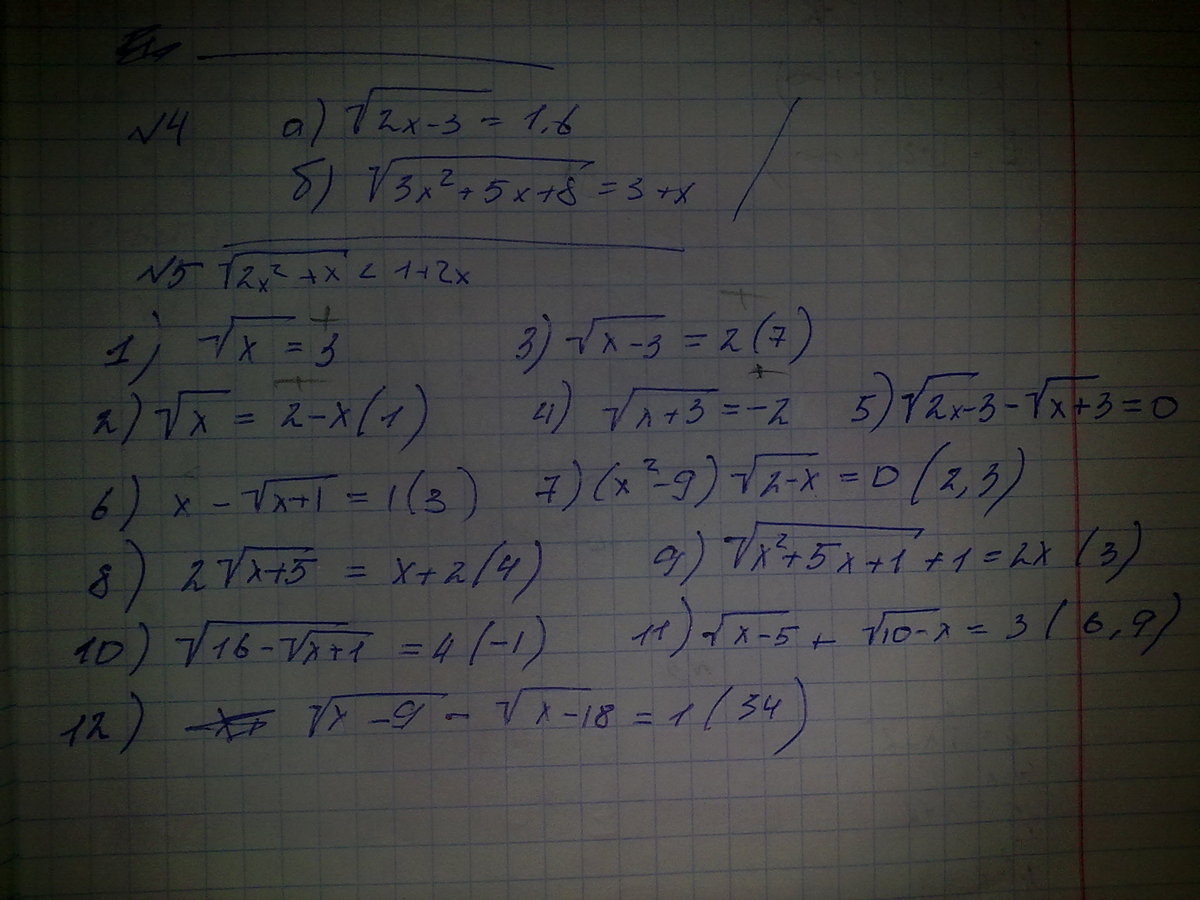 №4 а) √(2x-3) = 1,6
б) √(3x²+5x+8) = 3+x
№5 √(2x²+x) < 1+2x
1) √x = 3 3) √(x-3) = 2 (7)
2) √x = 2-x (1) 4) √(x+3) = -2 5) √(2x-3) - √(x+3) = 0
6) x - √(x+1) = 1 (3) 7) (x²-9) √(2-x) = 0 (2,3)
8) 2√(x+5) = x+2 (4) 9) √(x²+5x+1) + 1 = 2x (3)
10) √(16-√(x+1)) = 4 (-1) 11) √(x-5) + √(10-x) = 3 (6,9)
12) √(x-9) - √(x-18) = 1 (34)